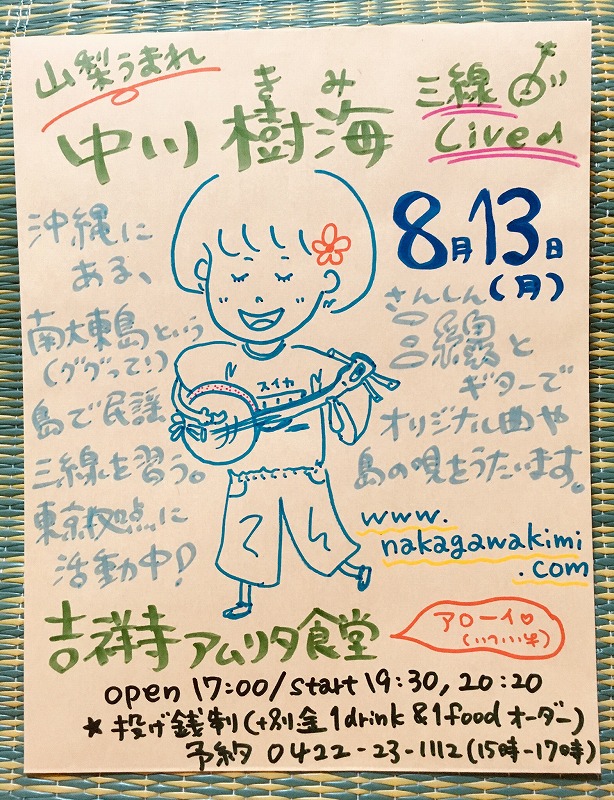 山梨うまれ
きみ
中川樹海
三線
Live
8月13日
(月)
沖縄に
ある、
南大東島という
(ググって!)
島で民謡
三線を習う。
東京拠点に
活動中!
スイカ
さんしん
三線と
ギターで
オリジナル曲や
島の唄をうたいます。
www.
nakagawakimi
.com
吉祥寺アムリタ食堂
アローイ♡
open 17:00/start 19:30, 20:20
★投げ銭制(+別金1drink&1foodオーダー)
予約 0422-23-1112(15時-17時)